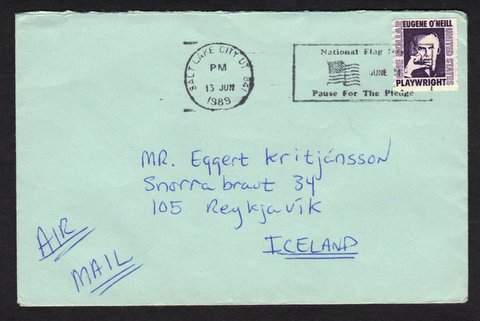 SALT LAKE CITY UT 841
PM
13 JUN
1989
National Flag
JUNE
Pause For The Pledge
EUGENE O'NEILL
PLAYWRIGHT
ONE DOLLAR
UNITED STATES
MR. Eggert Kritjánsson
Snorrabraut 34
105 Reykjavík
ICELAND
AIR
MAIL